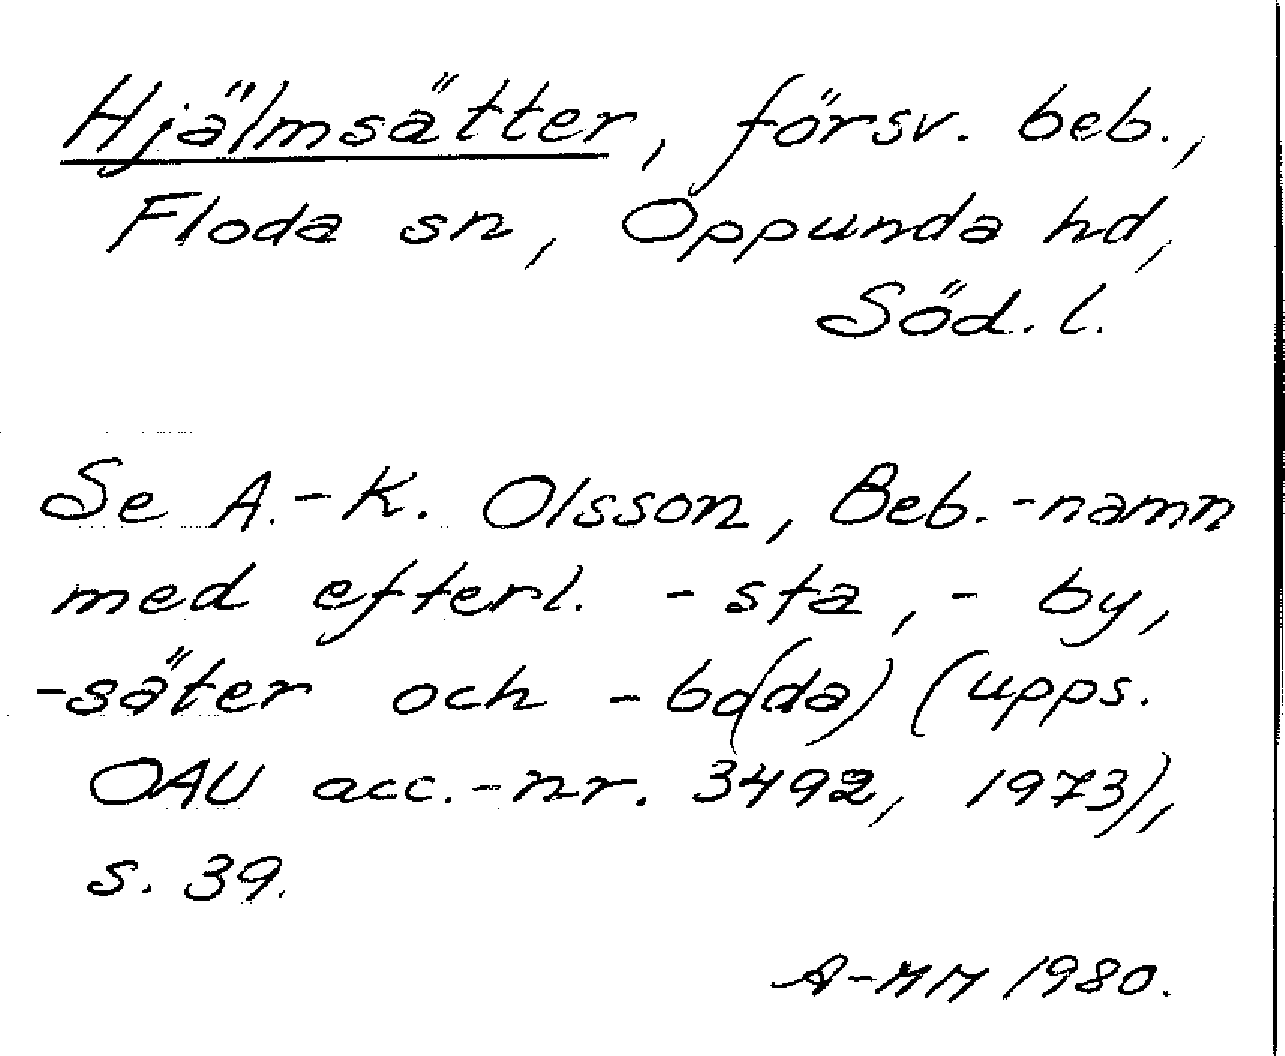 Hjälmsätter, försv. beb.,
Floda sn, Oppunda hd,
Söd. l.
Se A.-K. Olsson, Beb.-namn
med efterl. -sta, -by,
-säter och -bo(da) (upps.
OAU acc.-nr. 3492, 1973),
s. 39.
A-MM 1980.